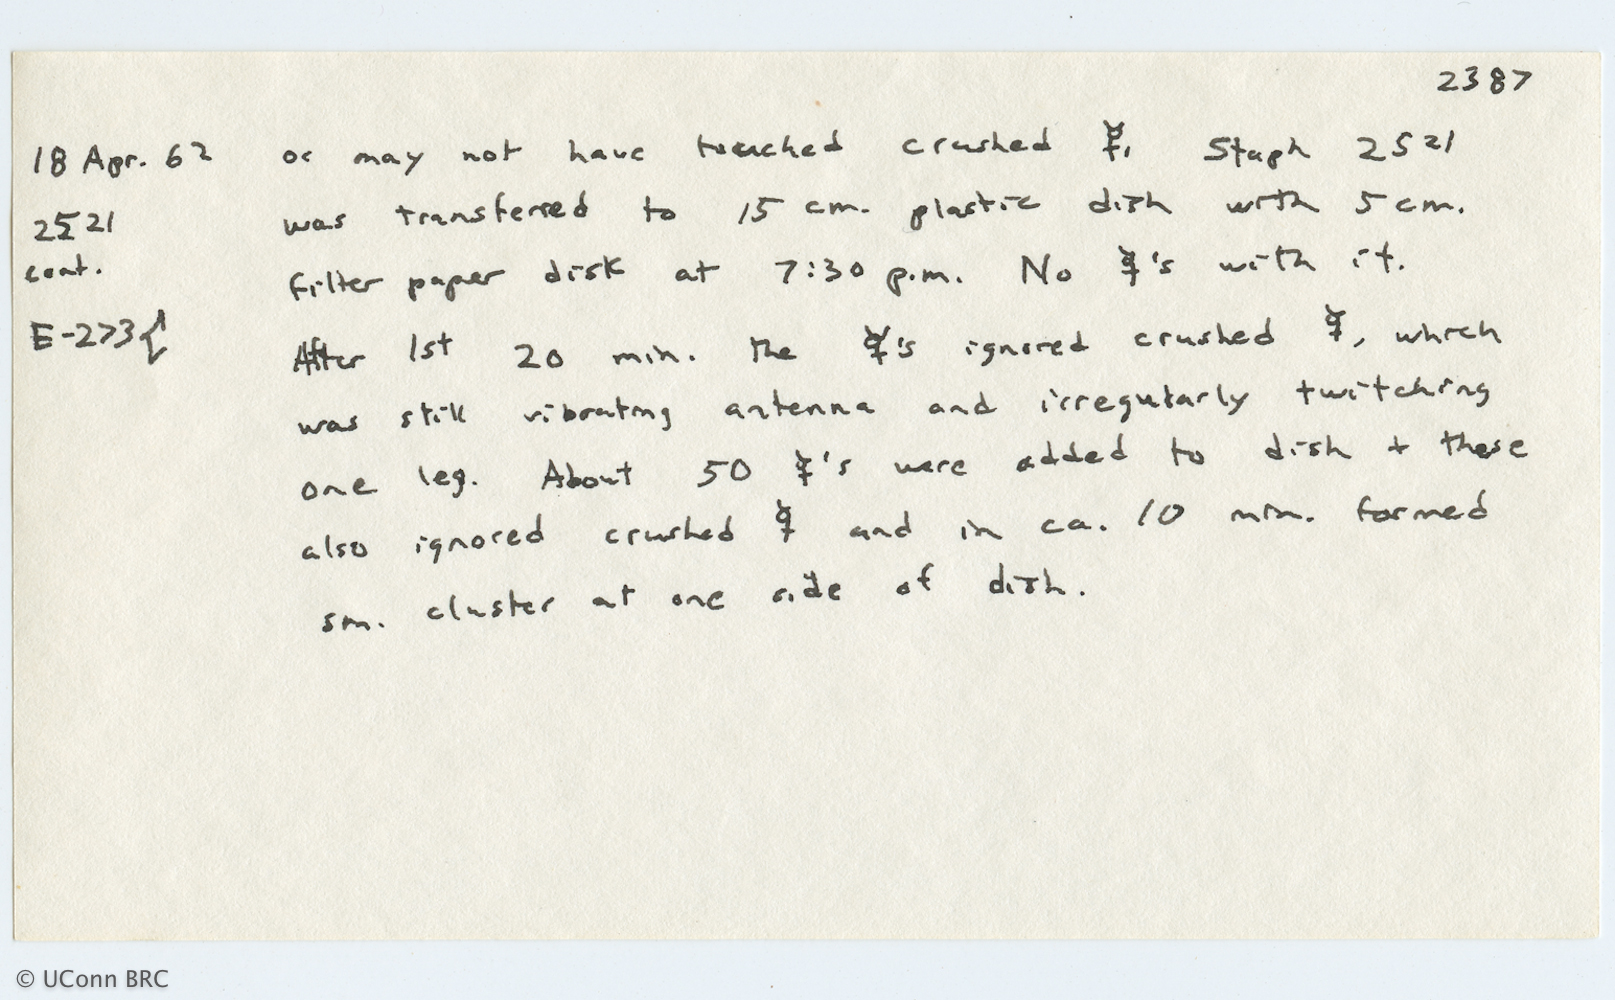 2387
18 Apr. 62 or may not have touched crushed ☿, Staph 2521
2521 was transferred to 15 cm. plastic dish with 5 cm.
cont. filter paper disk at 7:30 p.m. No ☿'s with it.
E-273{ After 1st 20 min. the ☿'s ignored crushed ☿, which
was still vibrating antenna and irregularly twitching
one leg. About 50 ☿'s were added to dish + these
also ignored crushed ☿ and in ca. 10 min. formed
sm. cluster at one side of dish.
© UConn BRC